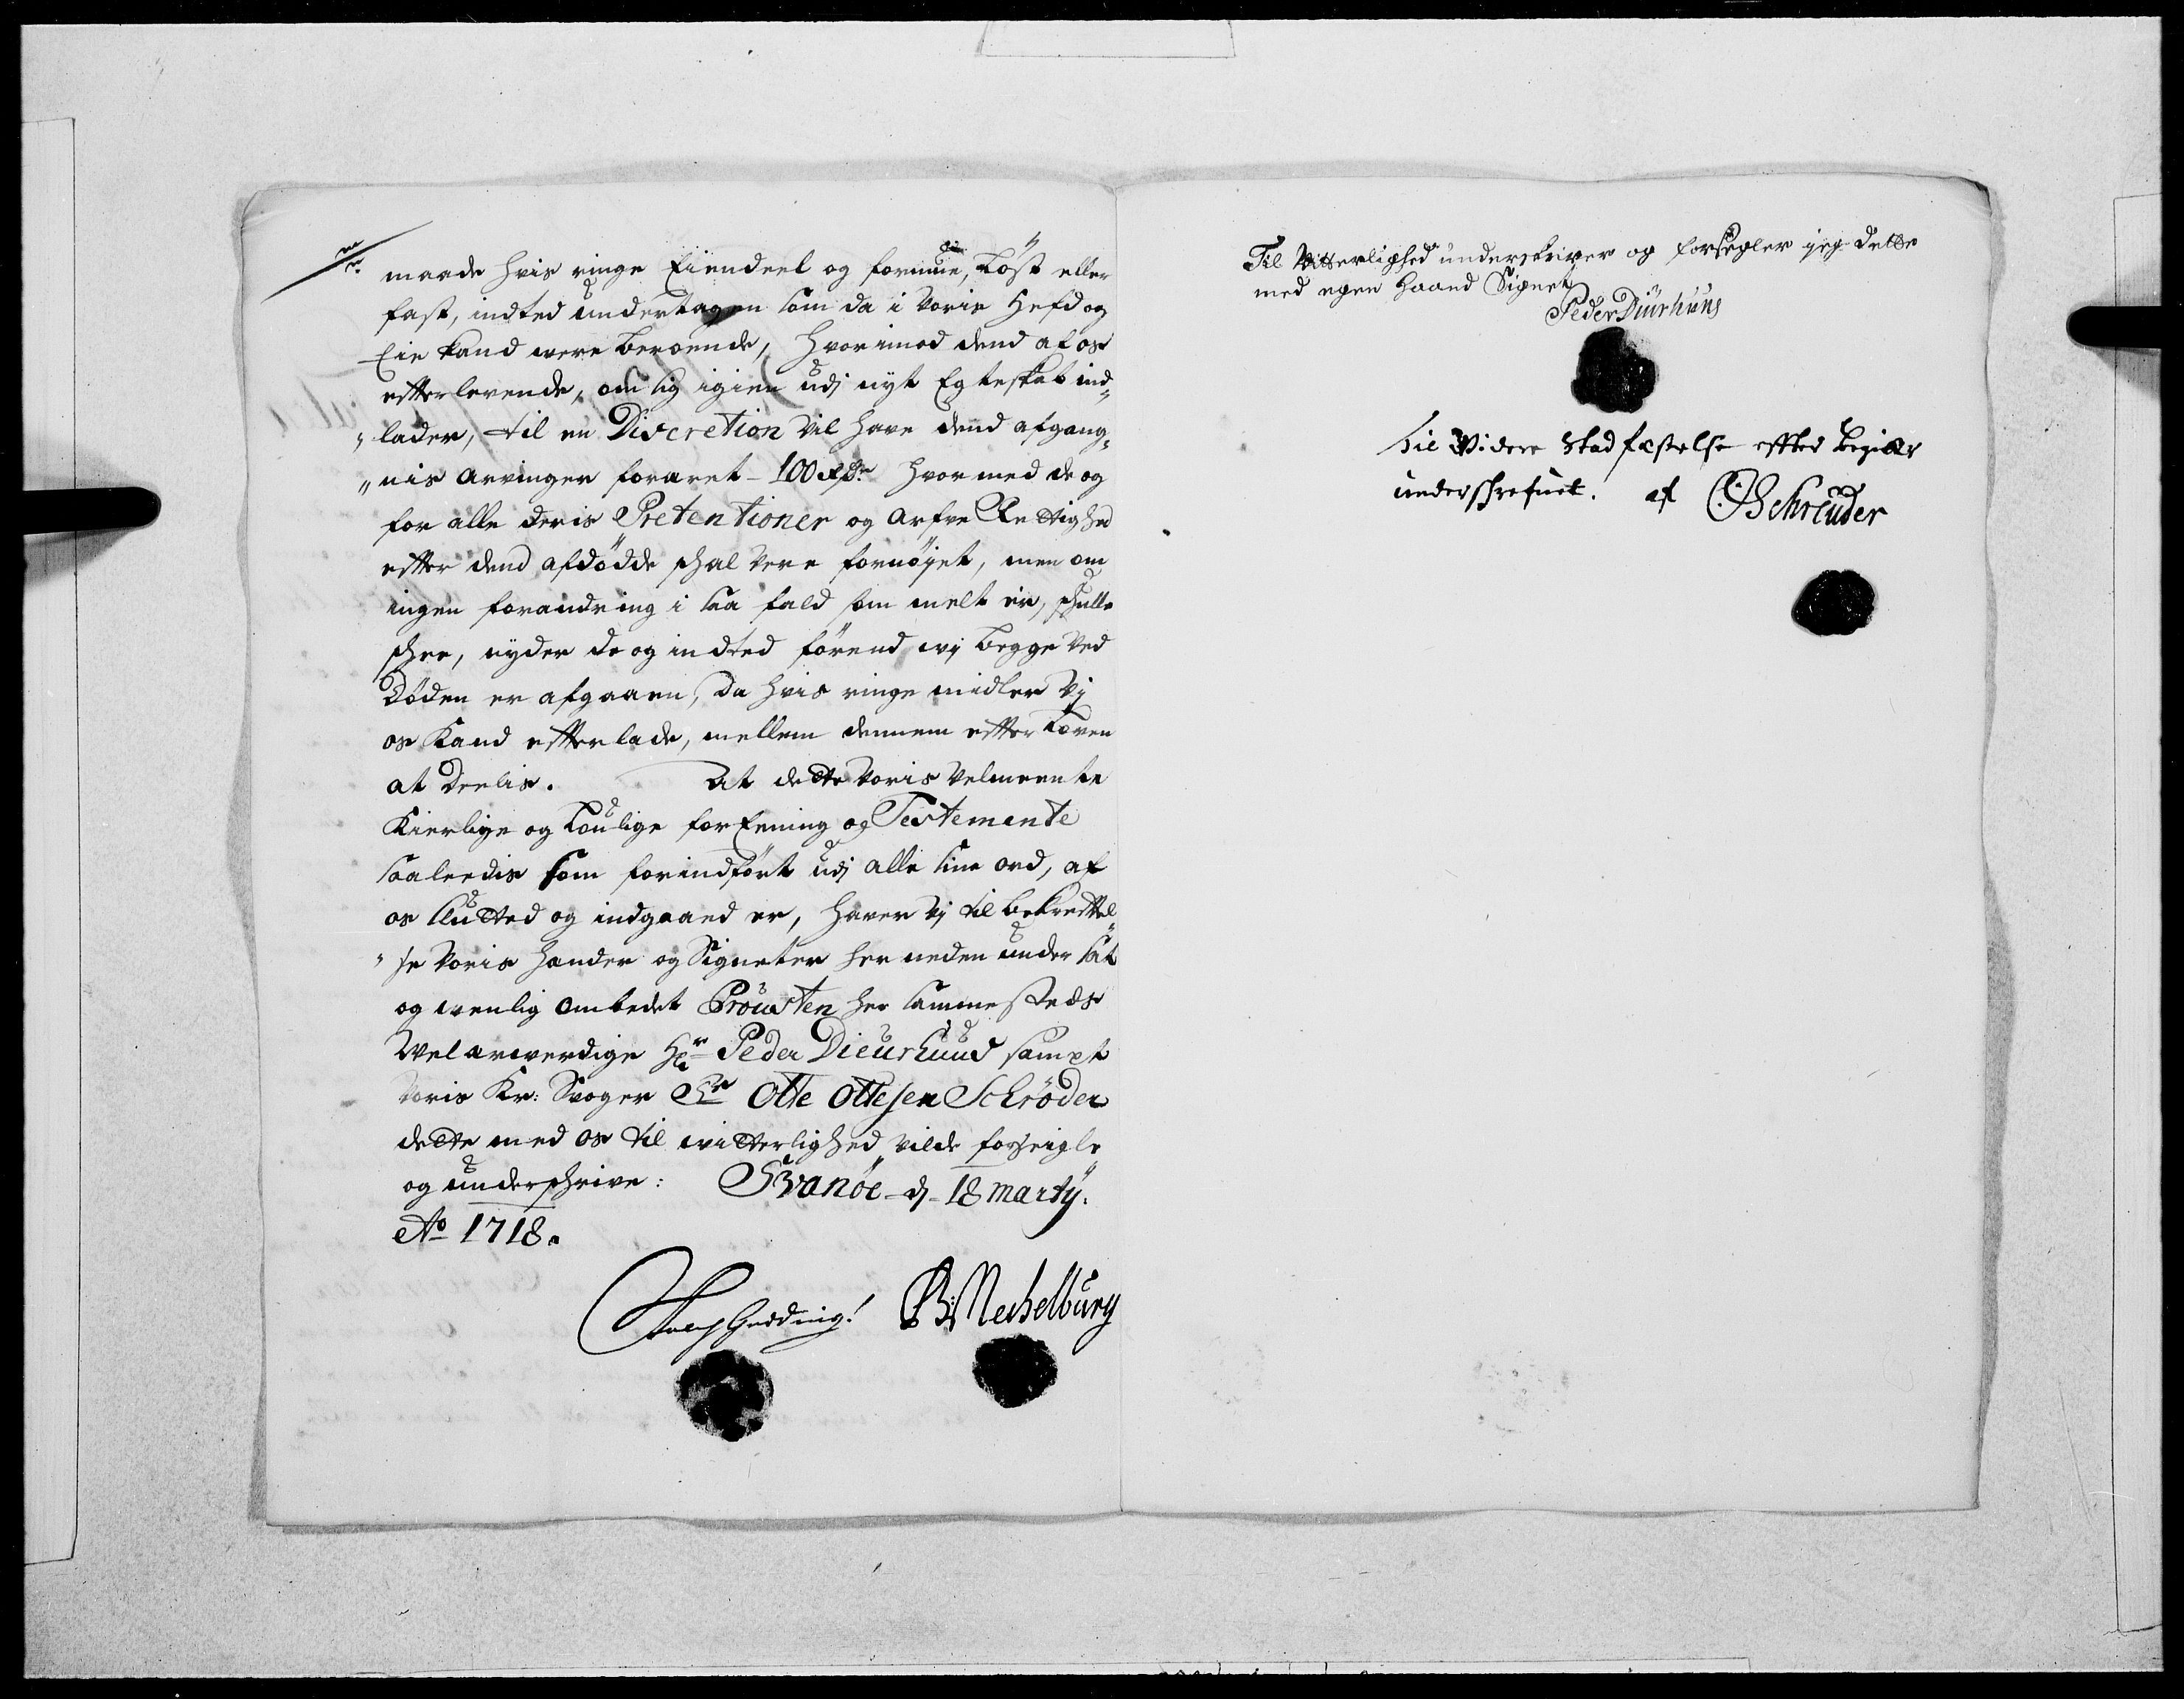 maade hvis ringe Eiendeel og formue, Løst eller
fast, indted undertagen som da i Voris Hefd og
Eie kand were beroende, hvorimod dend af os
efterlevende, om sig igien udj nyt Egteskab ind„
„lader, til en Discretion vil have dend afgang„
„nis arvinger foraret - 100 Rdr hvormed de og
for alle deris Pretentioner og Arfve Rettighed
efter dend afdødde schal vere fornøyet, men om
ingen forandring i saa fald som melt er, schulle
schee, nyder de og indted førend wj begge ved
Døden er afgaaen, da hvis ringe midler Vj
os Kand efterlade, mellem dennem efter Loven
at Deelis. At dette Voris Velmeente
Kierlige og Loulige forEening og Testemente
saaleedis som forindført udj alle sine ord, af
os slutted og indgaaed er, haver Vj til bekreftel„
„se Voris hander og Signeter her neden under sat
og wenlig ombedet Prousten her sammesteds
Velarwerdige Hr Peder Dieurhuus sampt
Voris Kr: Svoger Sr Otte Ottesen Schrøder
dette med os til witterlighed vilde forseigle
og underschrive: Svanøe d 18 marty.
Ao 1718.
B: Mechelburg
Til Vitterlighed underskriver og forsegler jeg dette
med egen Haand Signet
Peder Diurhuus
Til Videre Stadfæstelse efter begiær
underschrefuet. af O Schreuder